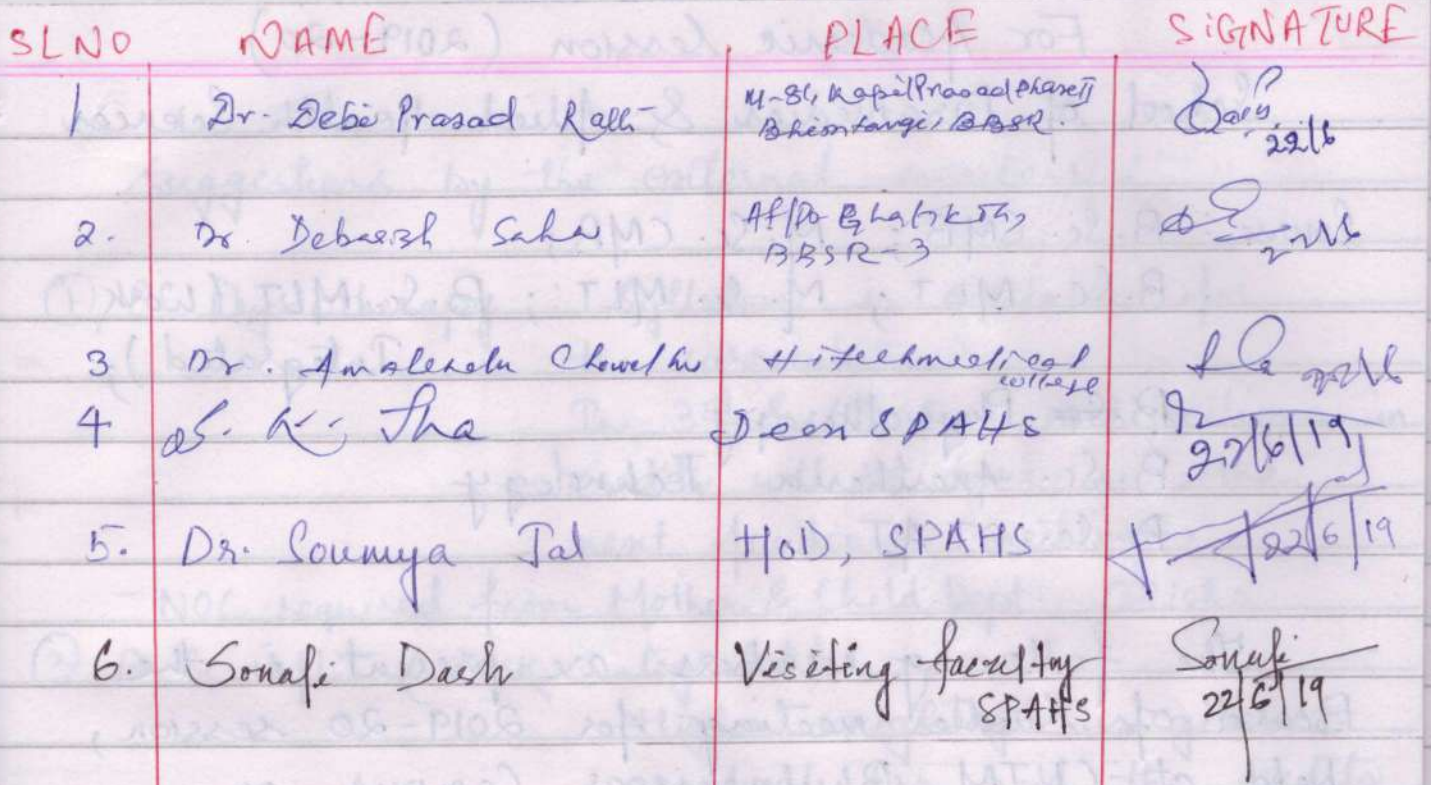 SL NO NAME PLACE SIGNATURE
1 Dr. Debi Prasad Rath M-86, Kapil Prasad Phase II
Bhimtangi, BBSR. 22/6
2. Dr Debasish Sahu At/Po
BBSR-3 22/6
3 Dr. Amalendu Hitechmedical
college 22/6
4 S. K. Jha Dean SPAHS
22/6/19
5. Dr. Soumya Jal HoD, SPAHS 22/6/19
6. Sonali Dash Visiting faculty Sonali
SPAHS 22/6/19